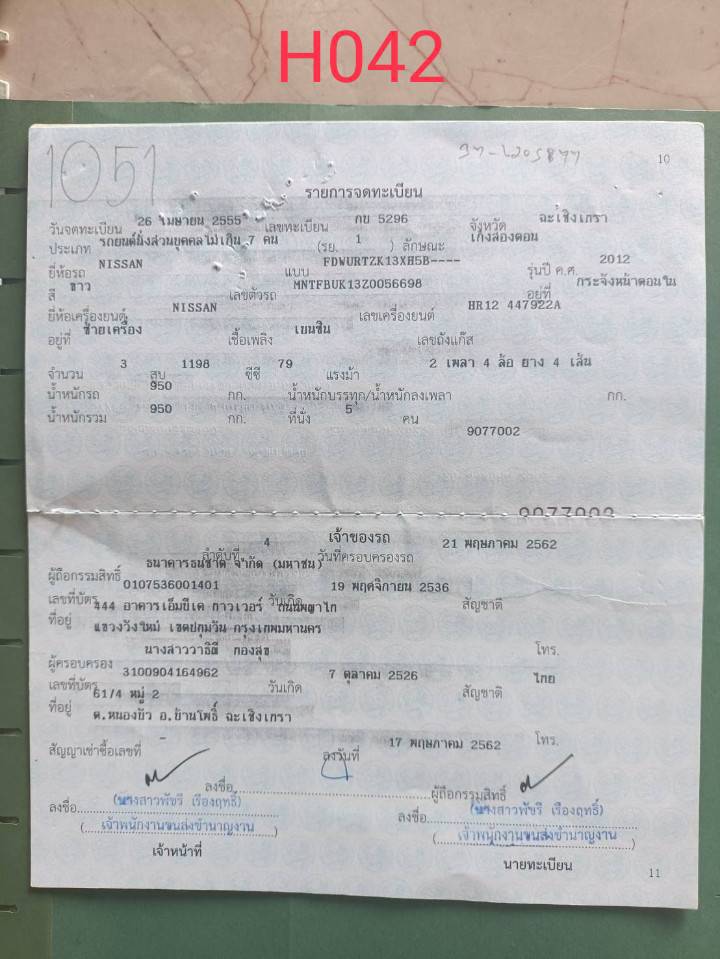 H042
1051
10
รายการจดทะเบียน
วันจดทะเบียน 26 เมษายน 2555 เลขทะเบียน กข 5296 จังหวัด ฉะเชิงเทรา
ประเภท รถยนต์นั่งส่วนบุคคลไม่เกิน 7 คน (รย. 1 ) ลักษณะ เก๋งสองตอน
ยี่ห้อรถ NISSAN แบบ FDWURTZK13XH5B---- รุ่นปี ค.ศ. 2012
สี ขาว เลขตัวรถ MNTFBUK13Z0056698 อยู่ที่ กระจังหน้าตอนใน
ยี่ห้อเครื่องยนต์ NISSAN เลขเครื่องยนต์ HR12 447922A
อยู่ที่ ซ้ายเครื่อง เชื้อเพลิง เบนซิน เลขถังแก๊ส
จำนวน 3 สูบ 1198 ซีซี 79 แรงม้า 2 เพลา 4 ล้อ ยาง 4 เส้น
น้ำหนักรถ 950 กก. น้ำหนักบรรทุก/น้ำหนักลงเพลา กก.
น้ำหนักรวม 950 กก. ที่นั่ง 5 คน
9077002
9077002
เจ้าของรถ
ลำดับที่ 4 วันที่ครอบครองรถ 21 พฤษภาคม 2562
ผู้ถือกรรมสิทธิ์ ธนาคารธนชาต จำกัด (มหาชน)
เลขที่บัตร 0107536001401 วันเกิด 19 พฤศจิกายน 2536 สัญชาติ
ที่อยู่ 444 อาคารเอ็มบีเค ทาวเวอร์ ถนนพญาไท
แขวงวังใหม่ เขตปทุมวัน กรุงเทพมหานคร
ผู้ครอบครอง นางสาววาธิตี กองสุข โทร.
เลขที่บัตร 3100904164962 วันเกิด 7 ตุลาคม 2526 สัญชาติ ไทย
ที่อยู่ 61/4 หมู่ 2
ต.หนองบัว อ.บ้านโพธิ์ ฉะเชิงเทรา
สัญญาเช่าซื้อเลขที่ - ลงวันที่ 17 พฤษภาคม 2562 โทร.
ลงชื่อ ผู้ถือกรรมสิทธิ์
ลงชื่อ (นางสาวพัชรี เรืองฤทธิ์) ลงชื่อ (นางสาวพัชรี เรืองฤทธิ์)
( เจ้าพนักงานขนส่งชำนาญงาน ) ( เจ้าพนักงานขนส่งชำนาญงาน )
เจ้าหน้าที่ นายทะเบียน
11